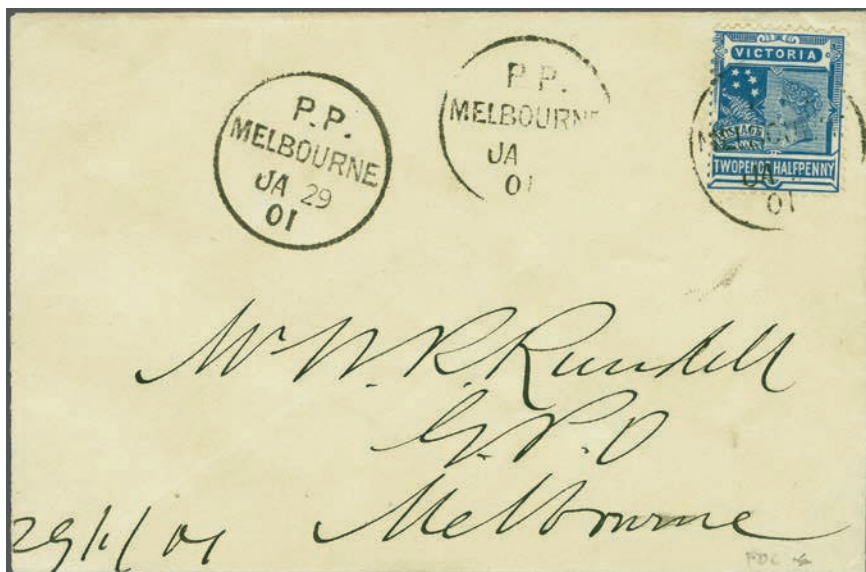 P.P.
MELBOURNE
JA 29
01
P.P.
MELBOURNE
JA
01
VICTORIA
POSTAGE
TWOPENCE HALFPENNY
MELBOURNE
JA
01
Mr W. R. Rundell
G.P.O
Melbourne
29/1/01
FDC